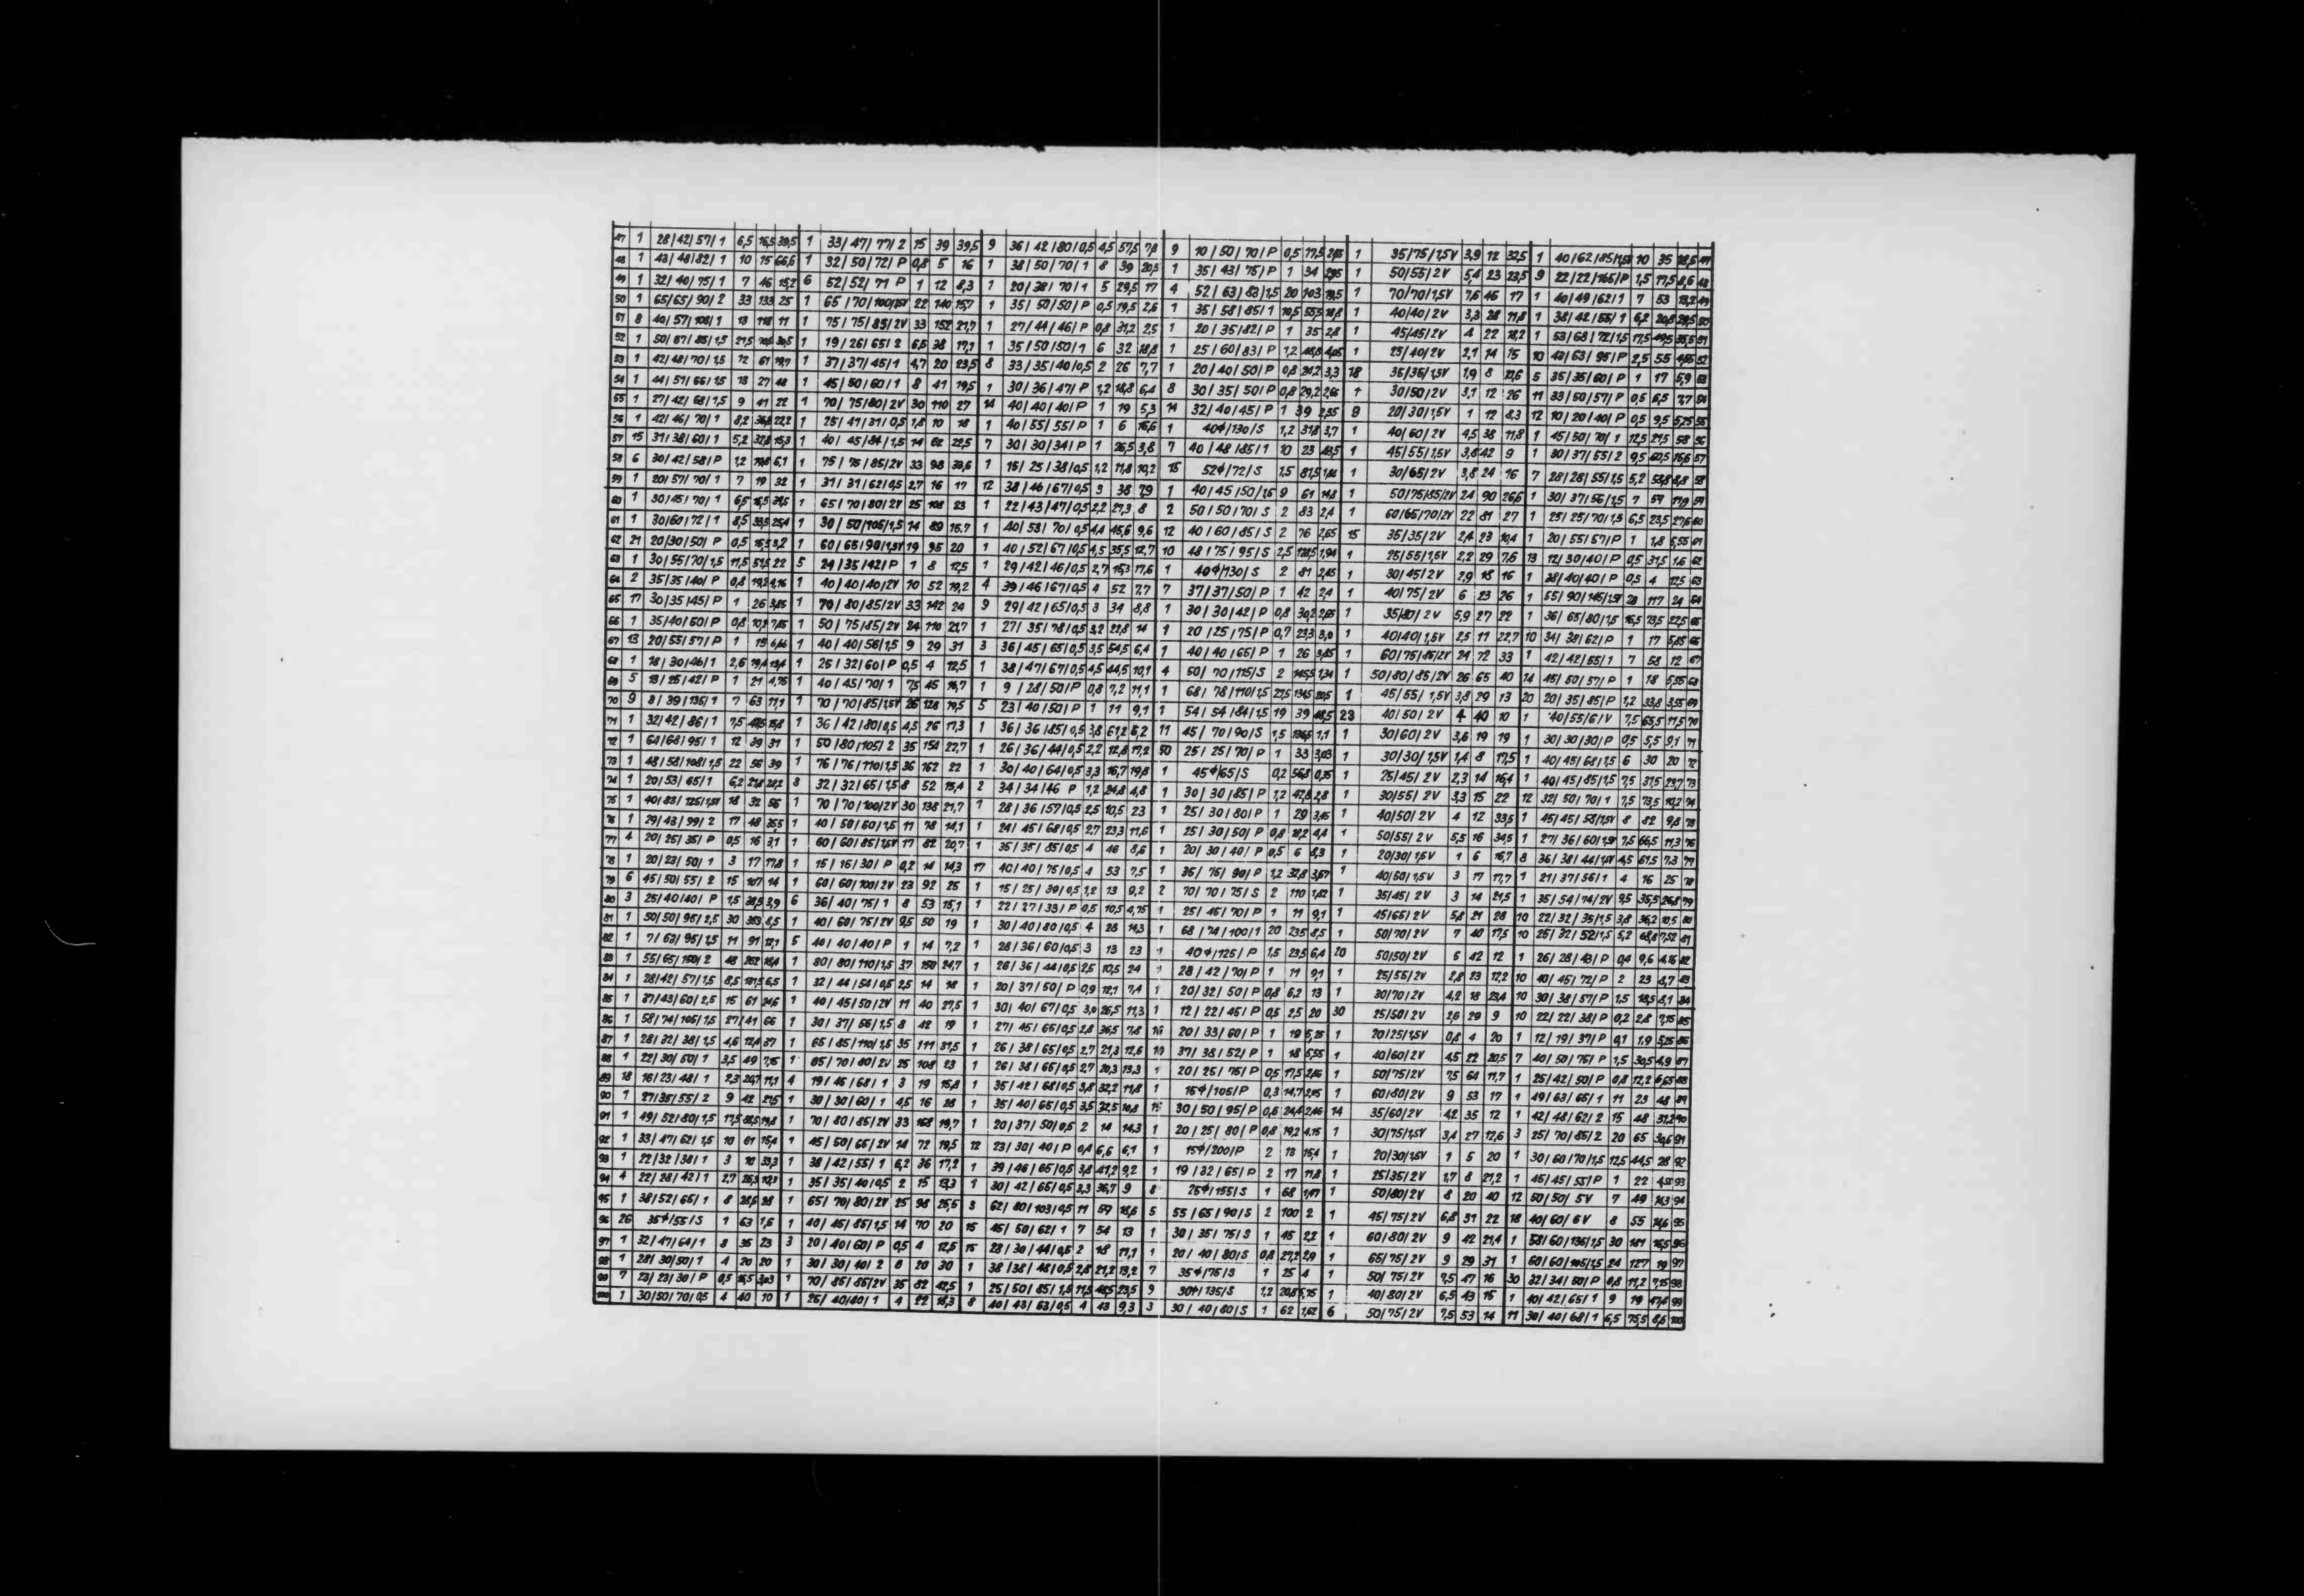 47 1 28/42/57/1 6,5 16,5 39,5 1 33/47/77/2 15 39 39,5 9 36/42/80/0,5 4,5 57,5 7,8 9 10/50/70/P 0,5 17,5 2,85 1 35/75/1,5V 3,9 12 32,5 1 40/62/85/1,5V 10 35 28,5 47
48 1 43/48/82/1 10 15 66,6 1 32/50/72/P 0,8 5 16 1 38/50/70/1 8 39 20,5 1 35/43/75/P 1 34 2,95 1 50/55/2V 5,4 23 23,5 9 22/22/165/P 1,5 17,5 8,6 48
49 1 32/40/75/1 7 46 15,2 6 52/52/71 P 1 12 8,3 1 20/38/70/1 5 29,5 17 4 52/63/83/1,5 20 103 19,5 1 70/70/1,5V 7,6 46 17 1 40/49/62/1 7 53 13,2 49
50 1 65/65/90/2 33 133 25 1 65/70/100/1,5V 22 140 15,7 1 35/50/50/P 0,5 19,5 2,6 1 35/58/85/1 10,5 55,5 18,8 1 40/40/2V 3,3 28 11,8 1 38/42/55/1 6,2 20,8 29,5 50
51 8 40/57/108/1 13 118 11 1 75/75/85/2V 33 152 21,7 1 27/44/46/P 0,8 31,2 2,5 1 20/35/82/P 1 35 2,8 1 45/45/2V 4 22 18,2 1 53/68/72/1,5 17,5 49,5 35,5 51
52 1 50/67/85/1,5 21,5 70,5 30,5 1 19/26/65/2 6,5 38 17,1 1 35/50/50/1 6 32 18,8 1 25/60/83/P 1,2 48,8 4,05 1 25/40/2V 2,1 14 15 10 43/63/95/P 2,5 55 4,55 52
53 1 42/48/70/1,5 12 61 19,7 1 37/37/45/1 4,7 20 23,5 8 33/35/40/0,5 2 26 7,7 1 20/40/50/P 0,8 24,2 3,3 18 35/35/1,5V 1,9 8 12,6 5 35/35/60/P 1 17 5,9 53
54 1 44/51/66/1,5 13 27 48 1 45/50/60/1 8 41 19,5 1 30/36/47/P 1,2 18,8 6,4 8 30/35/50/P 0,8 29,2 2,66 1 30/50/2V 3,1 12 26 11 33/50/57/P 0,5 6,5 7,7 54
55 1 27/42/68/1,5 9 41 22 1 70/75/80/2V 30 110 27 14 40/40/40/P 1 19 5,3 14 32/40/45/P 1 39 2,55 9 20/30/1,5V 1 12 8,3 12 10/20/40/P 0,5 9,5 5,25 55
56 1 42/46/70/1 8,2 36,8 22,2 1 25/41/31/0,5 1,8 10 18 1 40/55/55/P 1 6 16,6 1 40φ/130/S 1,2 31,8 3,7 1 40/60/2V 4,5 38 11,8 1 45/50/70/1 12,5 21,5 58 56
57 15 31/38/60/1 5,2 32,8 15,3 1 40/45/84/1,5 14 62 22,5 7 30/30/34/P 1 26,5 3,8 7 40/48/85/1 10 23 43,5 1 45/55/1,5V 3,8 42 9 1 30/37/55/2 9,5 60,5 15,6 57
58 6 30/42/58/P 1,2 19,8 6,1 1 75/75/85/2V 33 98 33,6 1 15/25/38/0,5 1,2 11,8 10,2 15 52φ/72/S 1,5 81,5 1,84 1 30/65/2V 3,8 24 16 7 28/28/55/1,5 5,2 58,8 8,8 58
59 1 20/57/70/1 7 19 32 1 31/31/62/0,5 2,7 16 17 12 38/46/67/0,5 3 38 7,9 1 40/45/50/1,5 9 61 14,8 1 50/75/85/2V 24 90 26,6 1 30/37/56/1,5 7 59 11,9 59
60 1 30/45/70/1 6,5 16,5 39,5 1 65/70/80/2V 25 108 23 1 22/43/47/0,5 2,2 27,3 8 2 50/50/70/S 2 83 2,4 1 60/65/70/2V 22 81 27 1 25/25/70/1,5 6,5 23,5 27,6 60
61 1 30/60/72/1 8,5 33,5 25,4 1 30/50/105/1,5 14 89 15,7 1 40/53/70/0,5 4,4 45,6 9,6 12 40/60/85/S 2 76 2,65 15 35/35/2V 2,4 23 10,4 1 20/55/57/P 1 1,8 5,55 61
62 21 20/30/50/P 0,5 16,5 3,2 1 60/65/90/1,5V 19 95 20 1 40/52/67/0,5 4,5 35,5 12,7 10 48/75/95/S 2,5 128,5 1,94 1 25/55/1,5V 2,2 29 7,6 13 12/30/40/P 0,5 31,5 1,6 62
63 1 30/55/70/1,5 11,5 51,5 22 5 24/35/42/P 1 8 12,5 1 29/42/46/0,5 2,7 15,3 17,6 1 40φ/130/S 2 81 2,45 1 30/45/2V 2,9 15 16 1 28/40/40/P 0,5 4 12,5 63
64 2 35/35/40/P 0,8 19,2 4,16 1 40/40/40/2V 10 52 19,2 4 39/46/67/0,5 4 52 7,7 7 37/37/50/P 1 42 2,4 1 40/75/2V 6 23 26 1 55/90/145/1,5V 28 117 24 64
65 17 30/35/45/P 1 26 3,85 1 70/80/85/2V 33 142 24 9 29/42/65/0,5 3 34 8,8 1 30/30/42/P 0,8 30,2 2,65 1 35/80/2V 5,9 27 22 1 36/65/80/1,5 16,5 73,5 22,5 65
66 1 35/40/50/P 0,8 10,2 7,85 1 50/75/85/2V 24 110 21,7 1 27/35/78/0,5 3,2 22,8 14 1 20/25/75/P 0,7 23,3 3,0 1 40/40/1,5V 2,5 11 22,7 10 34/38/62/P 1 17 5,85 66
67 13 20/55/57/P 1 15 6,66 1 40/40/56/1,5 9 29 31 3 36/45/65/0,5 3,5 54,5 6,4 1 40/40/65/P 1 26 3,85 1 60/75/85/2V 24 72 33 1 42/42/55/1 7 58 12 67
68 1 18/30/46/1 2,6 19,4 13,4 1 25/32/60/P 0,5 4 12,5 1 38/47/67/0,5 4,5 44,5 10,1 4 50/70/115/S 2 145,5 1,34 1 50/80/85/2V 26 65 40 14 45/50/57/P 1 18 5,55 68
69 5 13/25/42/P 1 21 4,75 1 40/45/70/1 7,5 45 16,7 1 9/28/50/P 0,8 7,2 11,1 1 68/78/110/1,5 27,5 134,5 20,5 1 45/55/1,5V 3,8 29 13 20 20/35/85/P 1,2 33,8 3,55 69
70 9 8/39/135/1 7 63 11,1 1 70/70/85/1,5V 26 128 19,5 5 23/40/50/P 1 11 9,1 1 54/54/84/1,5 19 39 48,5 23 40/50/2V 4 40 10 1 40/55/6/V 7,5 65,5 11,5 70
71 1 32/42/86/1 7,5 47,5 15,8 1 36/42/80/0,5 4,5 26 17,3 1 36/36/85/0,5 3,8 61,2 6,2 11 45/70/90/S 1,5 136,5 1,1 1 30/60/2V 3,6 19 19 1 30/30/30/P 0,5 5,5 9,1 71
72 1 64/68/95/1 12 39 31 1 50/80/105/2 35 154 22,7 1 26/36/44/0,5 2,2 12,8 17,2 50 25/25/70/P 1 33 3,03 1 30/30/1,5V 1,4 8 17,5 1 40/45/68/1,5 6 30 20 72
73 1 48/58/108/1,5 22 56 39 1 76/76/110/1,5 36 162 22 1 30/40/64/0,5 3,3 16,7 19,8 1 45φ/65/S 0,2 56,8 0,35 1 25/45/2V 2,3 14 16,4 1 40/45/85/1,5 7,5 31,5 23,7 73
74 1 20/53/65/1 6,2 21,8 28,2 8 32/32/65/1,5 8 52 15,4 2 34/34/46 P 1,2 24,8 4,8 1 30/30/85/P 1,2 42,8 2,8 1 30/55/2V 3,3 15 22 12 32/50/70/1 7,5 73,5 10,2 74
75 1 40/83/125/1,5V 18 32 56 1 70/70/100/2V 30 138 21,7 1 28/36/57/0,5 2,5 10,5 23 1 25/30/80/P 1 29 3,45 1 40/50/2V 4 12 33,5 1 45/45/58/1,5V 8 82 9,8 75
76 1 29/43/99/2 17 48 35,5 1 40/50/60/1,5 11 78 14,1 1 24/45/68/0,5 2,7 23,3 11,6 1 25/30/50/P 0,8 18,2 4,4 1 50/55/2V 5,5 16 34,5 1 27/36/60/1,5V 7,5 66,5 11,3 76
77 4 20/25/35/P 0,5 16 3,1 1 60/60/85/1,5V 17 82 20,7 1 35/35/85/0,5 4 46 8,6 1 20/30/40/P 0,5 6 8,3 1 20/30/1,5V 1 6 16,7 8 36/38/44/1,5V 4,5 61,5 7,3 77
78 1 20/23/50/1 3 17 17,8 1 15/16/30/P 0,2 14 14,3 17 40/40/75/0,5 4 53 7,5 1 35/75/90/P 1,2 32,8 3,67 1 40/50/1,5V 3 17 17,7 1 21/37/56/1 4 16 25 78
79 6 45/50/55/2 15 107 14 1 60/60/100/2V 23 92 25 1 15/25/39/0,5 1,2 13 9,2 2 70/70/75/S 2 110 1,82 1 35/45/2V 3 14 21,5 1 35/54/74/2V 9,5 35,5 26,8 79
80 3 25/40/40/P 1,5 38,5 3,9 6 36/40/75/1 8 53 15,1 1 22/27/33/P 0,5 10,5 4,75 1 25/45/70/P 1 11 9,1 1 45/65/2V 5,8 21 28 10 22/32/35/1,5 3,8 36,2 10,5 80
81 1 50/50/95/2,5 30 353 8,5 1 40/60/75/2V 9,5 50 19 1 30/40/80/0,5 4 28 14,3 1 68/74/100/1 20 235 8,5 1 50/70/2V 7 40 17,5 10 25/32/52/1,5 5,2 68,8 7,52 81
82 1 7/63/95/1,5 11 91 12,1 5 40/40/40/P 1 14 7,2 1 28/36/60/0,5 3 13 23 1 40φ/125/P 1,5 23,5 6,4 20 50/50/2V 6 42 12 1 26/28/43/P 0,4 9,6 4,16 82
83 1 55/65/150/2 48 262 18,4 1 80/80/110/1,5 37 150 24,7 1 26/36/44/0,5 2,5 10,5 24 1 28/42/70/P 1 11 9,1 1 25/55/2V 2,8 23 12,2 10 40/45/72/P 2 23 8,7 83
84 1 28/42/57/1,5 8,5 181,5 6,5 1 32/44/54/0,5 2,5 14 18 1 20/37/50/P 0,9 12,1 7,4 1 20/32/50/P 0,8 6,2 13 1 30/70/2V 4,2 18 23,4 10 30/38/57/P 1,5 18,5 8,1 84
85 1 37/43/60/2,5 15 61 24,6 1 40/45/50/2V 11 40 27,5 1 30/40/67/0,5 3,0 26,5 11,3 1 12/22/45/P 0,5 2,5 20 30 25/50/2V 2,6 29 9 10 22/22/38/P 0,2 2,8 7,15 85
86 1 58/74/105/1,5 27 41 66 1 30/37/56/1,5 8 42 19 1 27/45/65/0,5 2,8 36,5 7,8 16 20/33/60/P 1 19 5,25 1 20/25/1,5V 0,8 4 20 1 12/19/37/P 0,1 1,9 5,25 86
87 1 28/32/38/1,5 4,6 12,4 37 1 65/85/110/1,5 35 111 31,5 1 26/38/65/0,5 2,7 21,3 12,6 10 37/38/52/P 1 18 5,55 1 40/60/2V 4,5 22 20,5 7 40/50/75/P 1,5 30,5 4,9 87
88 1 22/30/50/1 3,5 49 7,15 1 65/70/80/2V 25 108 23 1 26/38/65/0,5 2,7 20,3 13,3 1 20/25/75/P 0,5 17,5 2,86 1 50/75/2V 7,5 64 11,7 1 25/42/50/P 0,8 12,2 6,65 88
89 18 16/23/48/1 2,3 20,7 11,1 4 19/45/68/1 3 19 15,8 1 35/42/68/0,5 3,8 32,2 11,8 1 15φ/105/P 0,3 14,7 2,05 1 60/80/2V 9 53 17 1 49/63/65/1 11 23 48 89
90 1 27/35/55/2 9 42 21,5 1 30/30/60/1 4,5 16 28 1 35/40/65/0,5 3,5 32,5 10,8 15 30/50/95/P 0,6 24,4 2,46 14 35/60/2V 4,2 35 12 1 42/48/62/2 15 48 31,2 90
91 1 49/52/80/1,5 17,5 88,5 19,8 1 70/80/85/2V 33 168 19,7 1 20/37/50/0,5 2 14 14,3 1 20/25/80/P 0,8 19,2 4,15 1 30/75/1,5V 3,4 27 12,6 3 25/70/85/2 20 65 30,6 91
92 1 33/47/62/1,5 10 61 16,4 1 45/50/65/2V 14 72 19,5 12 23/30/40/P 0,4 6,6 6,1 1 15φ/200/P 2 13 15,4 1 20/30/1,5V 1 5 20 1 30/60/70/1,5 12,5 44,5 28 92
93 1 22/32/38/1 3 10 33,3 1 38/42/55/1 6,2 36 17,2 1 39/46/65/0,5 3,8 41,2 9,2 1 19/32/65/P 2 17 11,8 1 25/35/2V 1,7 8 21,2 1 45/45/55/P 1 22 4,55 93
94 4 22/28/42/1 2,7 26,3 10,3 1 35/35/40/0,5 2 15 13,3 1 30/42/65/0,5 3,3 36,7 9 8 25φ/155/S 1 68 1,47 1 50/80/2V 8 20 40 12 50/50/5V 7 49 14,3 94
95 1 38/52/65/1 8 28,5 28 1 65/70/80/2V 25 98 25,5 3 62/80/103/0,5 11 59 18,6 5 55/65/90/S 2 100 2 1 45/75/2V 6,8 31 22 18 40/60/6V 8 55 14,6 95
96 26 35φ/55/S 1 63 1,6 1 40/45/85/1,5 14 70 20 15 45/50/62/1 7 54 13 1 30/35/75/S 1 45 2,2 1 60/80/2V 9 42 21,4 1 58/60/135/1,5 30 181 16,5 96
97 1 32/47/64/1 8 35 23 3 20/40/60/P 0,5 4 12,5 15 28/30/44/0,5 2 18 11,1 1 20/40/80/S 0,8 27,2 2,9 1 65/75/2V 9 29 31 1 60/60/105/1,5 24 127 19 97
98 1 28/30/50/1 4 20 20 1 30/30/40/2 8 20 30 1 38/38/48/0,5 2,8 21,2 13,2 7 35φ/75/S 1 25 4 1 50/75/2V 7,5 47 16 30 32/34/50/P 0,8 11,2 7,15 98
99 7 23/23/30/P 0,5 16,5 3,03 1 70/85/85/2V 35 82 42,5 1 25/50/85/1,5 11,5 48,5 23,5 9 30φ/135/S 1,2 20,8 5,75 1 40/80/2V 6,5 43 15 1 40/42/65/1 9 19 47,4 99
100 1 30/50/70/0,5 4 40 10 1 25/40/40/1 4 22 18,3 8 40/43/63/0,5 4 43 9,3 3 30/40/80/S 1 62 1,62 6 50/75/2V 7,5 53 14 11 30/40/68/1 6,5 75,5 8,6 100